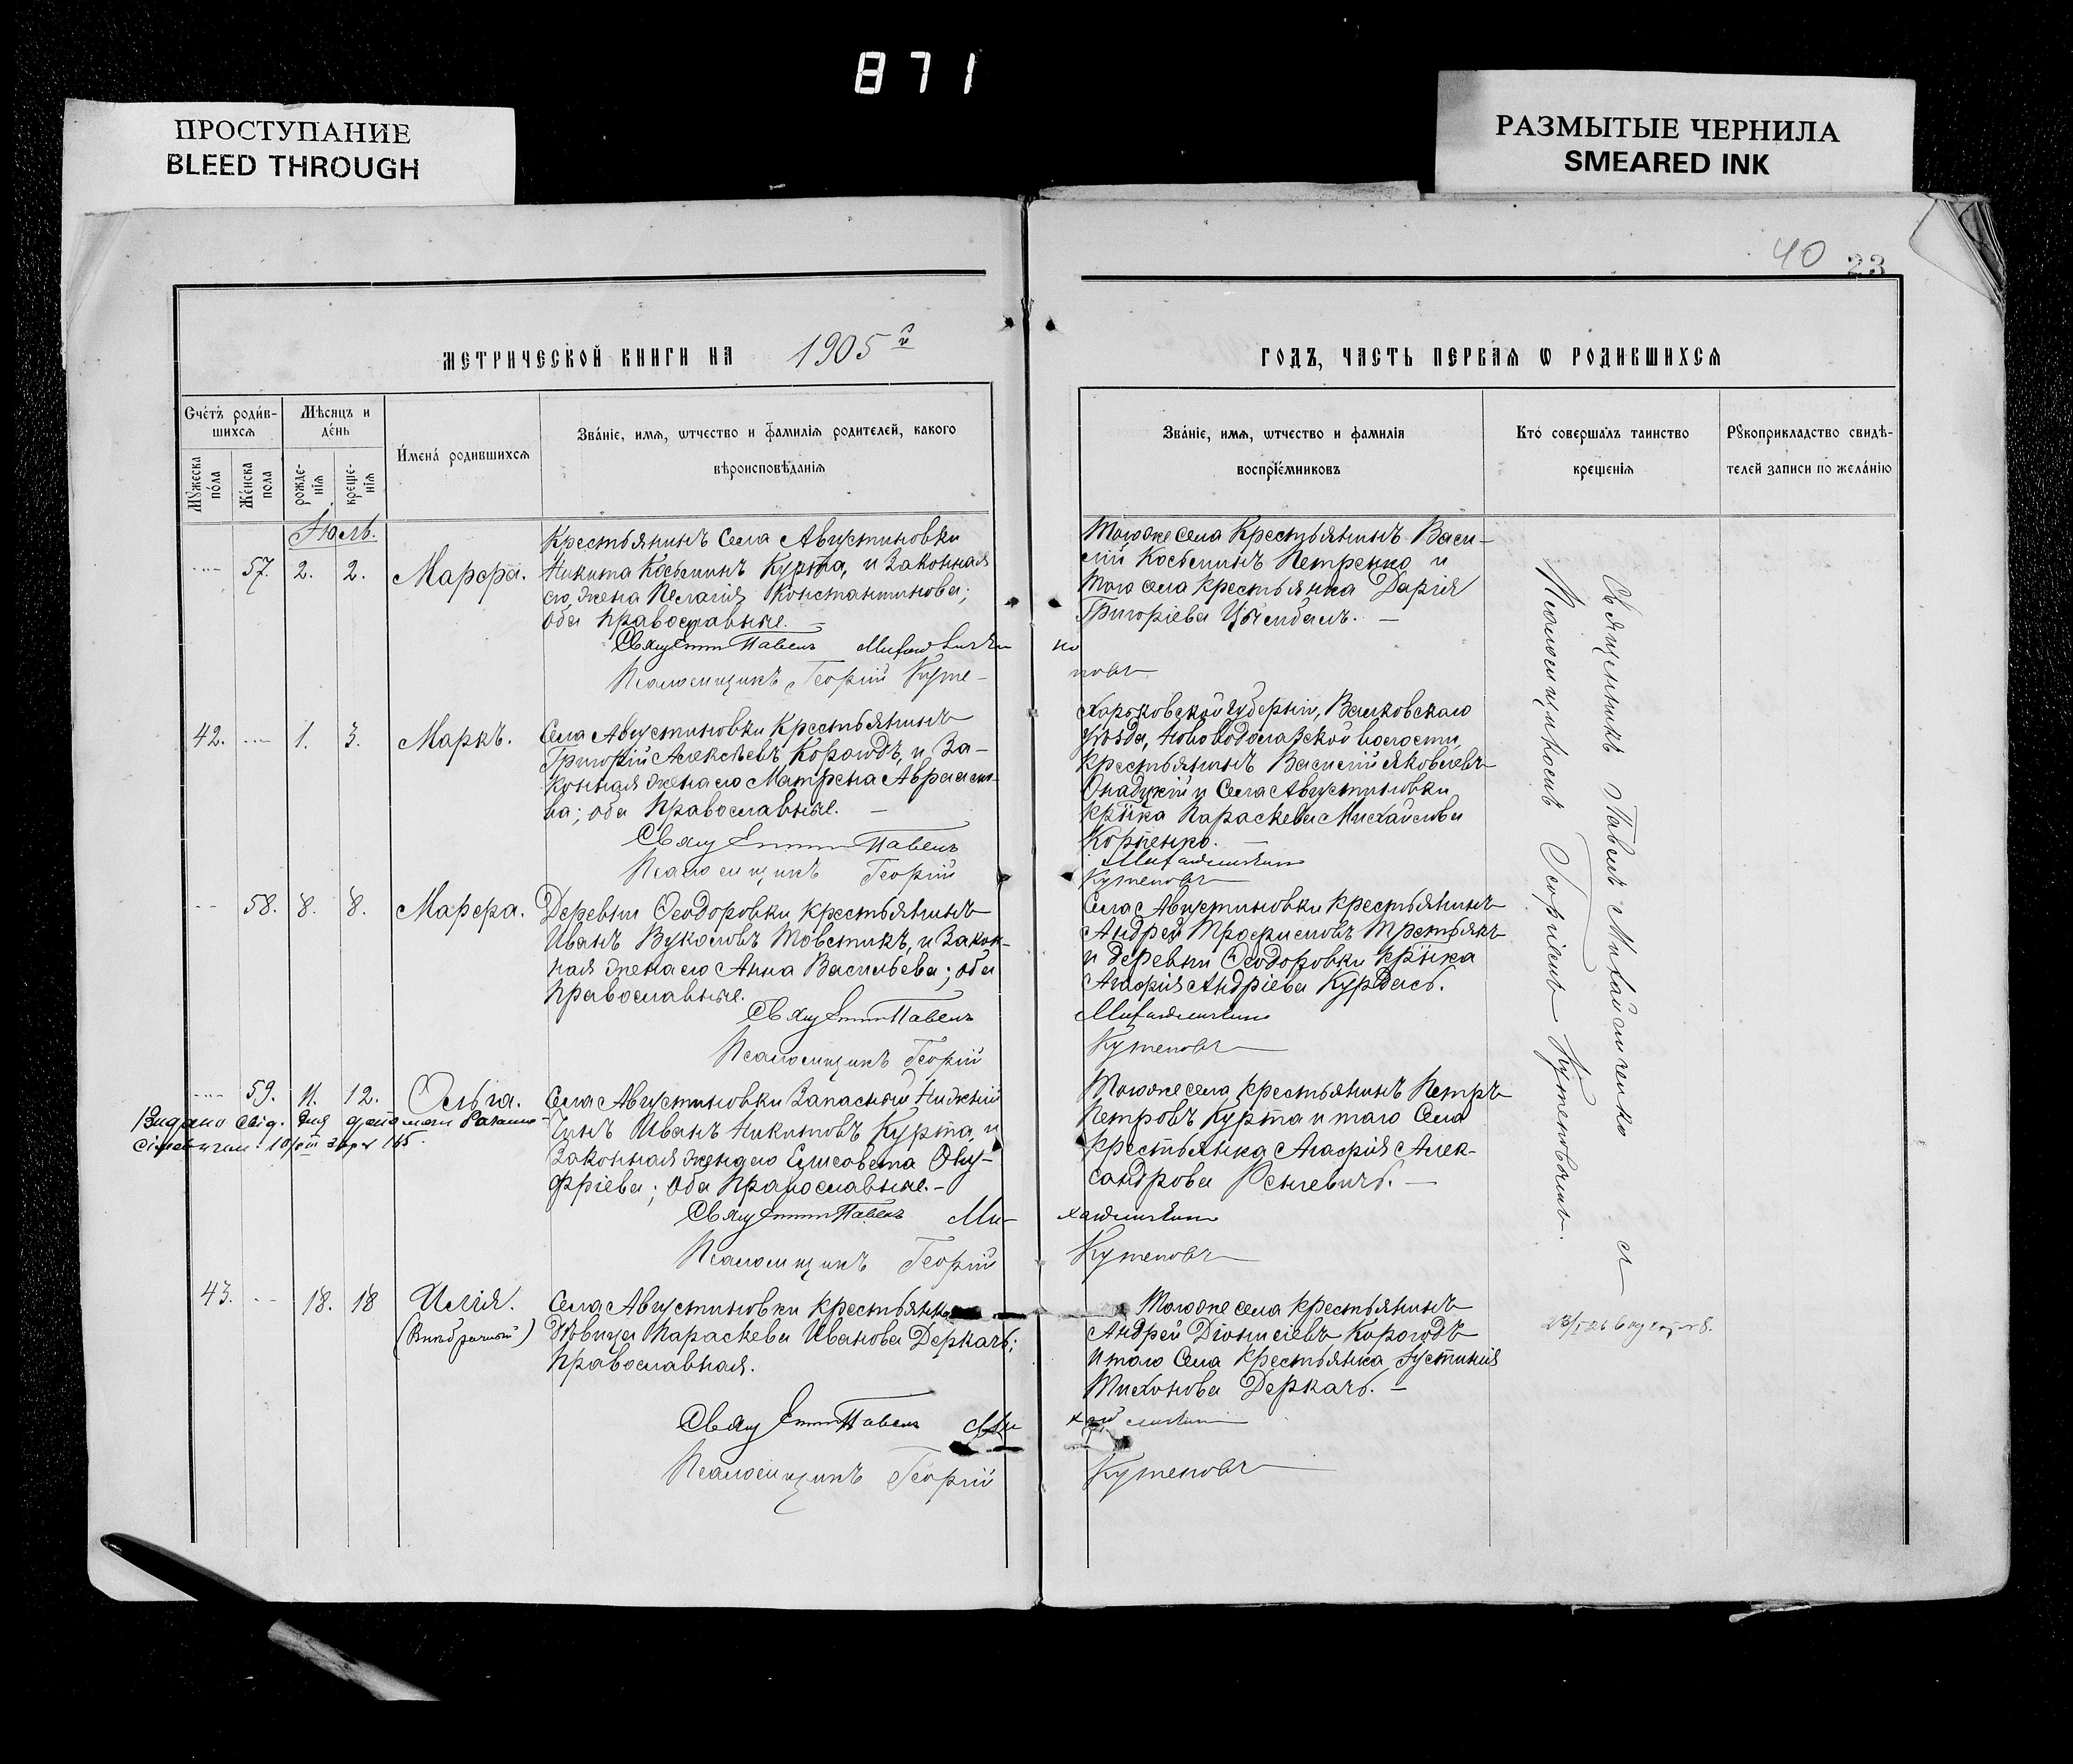 871
ПРОСТУПАНИЕ
BLEED THROUGH
РАЗМЫТЫЕ ЧЕРНИЛА
SMEARED INK
40 23
МЕТРИЧЕСКОЙ КНИГИ НА 1905 й
ГОДЪ, ЧАСТЬ ПЕРВАЯ Ѡ РОДИВШИХСЯ
Счетъ родив-
шихся
Мужеска
пола
Женска
пола
Мѣсяцъ и
день
рожде-
нія
креще-
нія
Имена родившихся
Званіе, имя, ѿтчество и фамилія родителей, какого
вѣроисповѣданія
Званіе, имя, ѿтчество и фамилія
воспріемниковъ
Кто совершалъ таинство
крещенія
Рукоприкладство свидѣ-
телей записи по желанію
Іюль.
57. 2. 2. Марѳа.
Крестьянинъ Села Августиновки
Никита Косьминъ Курта, и Законная
его жена Пелагія Константинова;
оба православные. –
Священникъ Павелъ Михайличенко
Псаломщикъ Георгій Кутеповъ
Тогоже села Крестьянинъ Васи-
лій Косьминъ Петренко и
того села крестьянка Дарія
Григоріева Цымбалъ. –
42. 1. 3. Маркъ.
Села Августиновки Крестьянинъ
Григорій Алексѣевъ Корогодъ, и За-
конная жена его Матрена Авраамо-
ва; оба Православные. –
Священникъ Павелъ
Псаломщикъ Георгій
Харьковской губерніи, Валковскаго
уѣзда, Нововодолазской волости,
крестьянинъ Василій Яковлевъ
и Села Августиновки
кр‑нка Параскева Михайлова
Корніенко.
Михайличенко
Кутеповъ
58. 8. 8. Марѳа.
Деревни Ѳеодоровки крестьянинъ
Иванъ Вуколовъ Товстикъ, и Закон-
ная жена его Анна Васильева; оба
Православные.
Священникъ Павелъ
Псаломщикъ Георгій
Села Августиновки крестьянинъ
Андрей Трофимовъ Третьякъ
и деревни Ѳеодоровки кр‑нка
Агафія Андріева Курдасъ.
Михайличенко
Кутеповъ
59. 11. 12. Ольга.
Видано свід. для
Села Августиновки Запасный Нижній
Чинъ Иванъ Никитовъ Курта, и
Законная жена его Елисавета Ону-
фріева; Оба Православные. –
Священникъ Павелъ Ми-
Псаломщикъ Георгій
Тогоже села крестьянинъ Петръ
Петровъ Курта и того Села
крестьянка Агафія Алек-
сандрова –
хайличенко
Кутеповъ
43. 18. 18 Илія.
(Внѣбрачный)
Села Августиновки крестьянка
Дѣвица Параскева Иванова Деркачъ;
Православная.
Священникъ Павелъ Ми
Псаломщикъ Георгій
Тогоже села крестьянинъ
Андрей Діонисіевъ Корогодъ
И того Села крестьянка Іустинія
Тихонова Деркачъ. –
хайличенко
Кутеповъ
Священникъ Павелъ Михайличенко съ
Псаломщикомъ Георгіемъ Кутеповымъ.